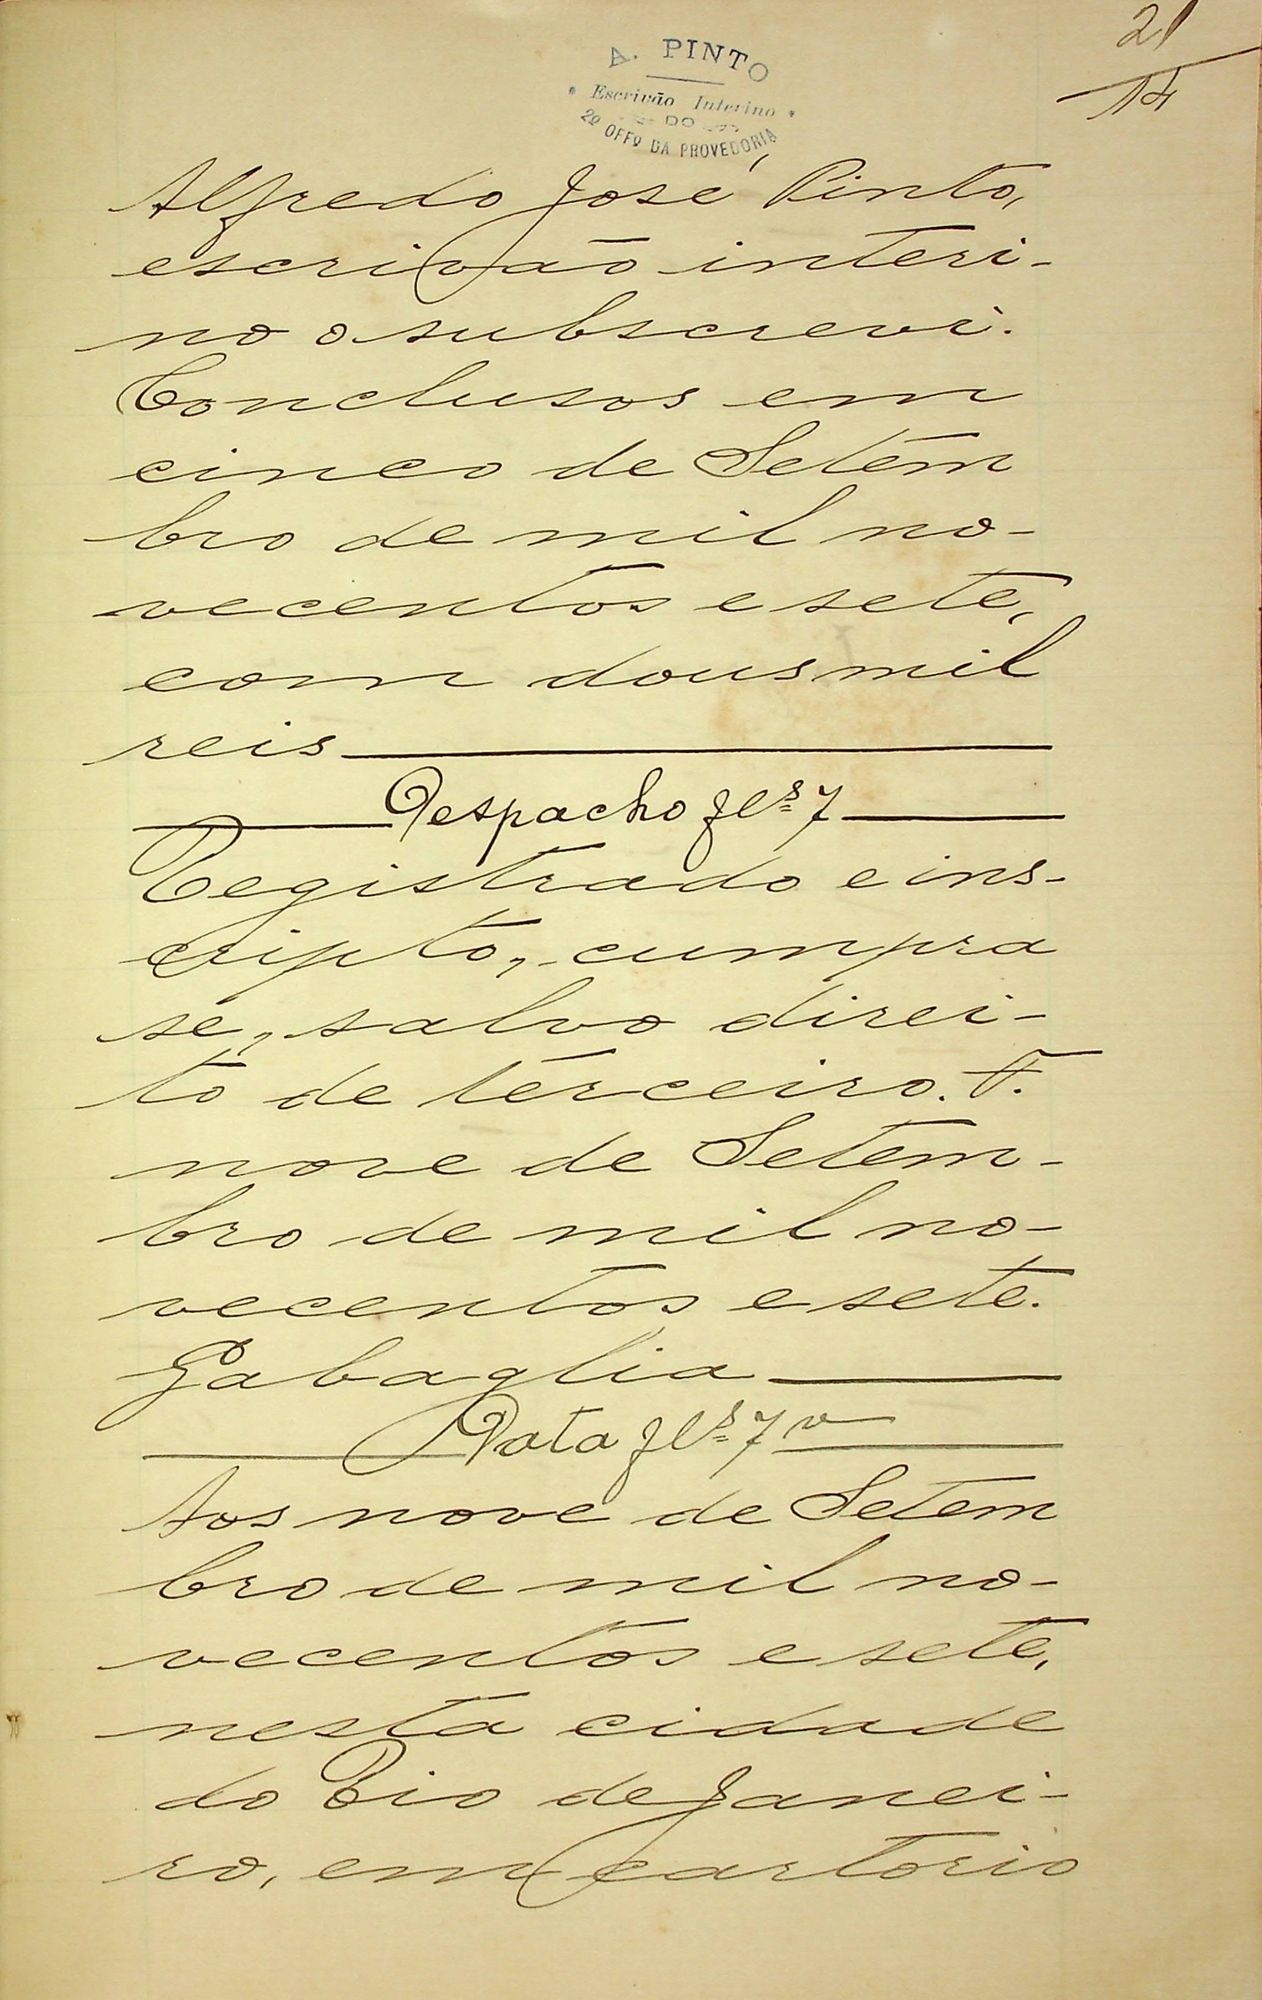 21
14
A. PINTO
* Escrivão Interino *
DO
2º OFFº DA PROVEDORIA
Alfredo José Pinto,
escrivão interi-
no o subscrevi.
Conclusos em
cinco de Setem
bro de mil no-
vecentos e sete,
com dous mil
reis
Despacho fls 7
Registrado e ins-
cripto, cumpra
se, salvo direi-
to de terceiro. F.
nove de Setem-
bro de mil no-
vecentos e sete.
Gabaglia
Data fls 7 v
Aos nove de Setem
bro de mil no-
vecentos e sete,
nesta cidade
do Rio de Janei-
ro, em cartorio